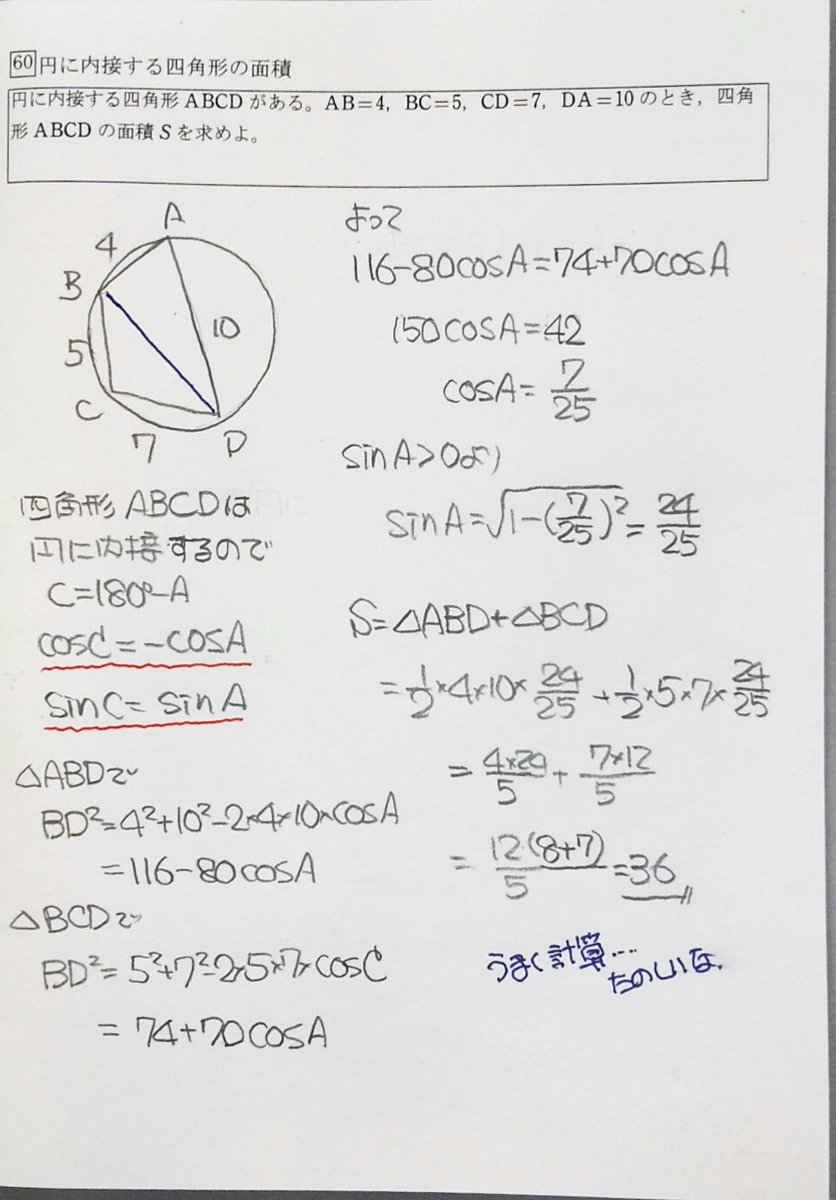 60 円に内接する四角形の面積
円に内接する四角形 ABCD がある。AB=4, BC=5, CD=7, DA=10 のとき, 四角
形 ABCD の面積 S を求めよ。
A
4
B
10
5
C
7
D
四角形 ABCDは
円に内接するので
C=180°-A
cosC=-cosA
sinC=sinA
△ABDで
BD²=4²+10²-2×4×10×cosA
=116-80cosA
△BCDで
BD²=5²+7²-2×5×7×cosC
=74+70cosA
よって
116-80cosA=74+70cosA
150cosA=42
cosA=7/25
sinA>0より
sinA=√1-(7/25)²=24/25
S=△ABD+△BCD
=1/2×4×10×24/25+1/2×5×7×24/25
=4×24/5+7×12/5
=12(8+7)/5=36
うまく計算…
たのしいな。